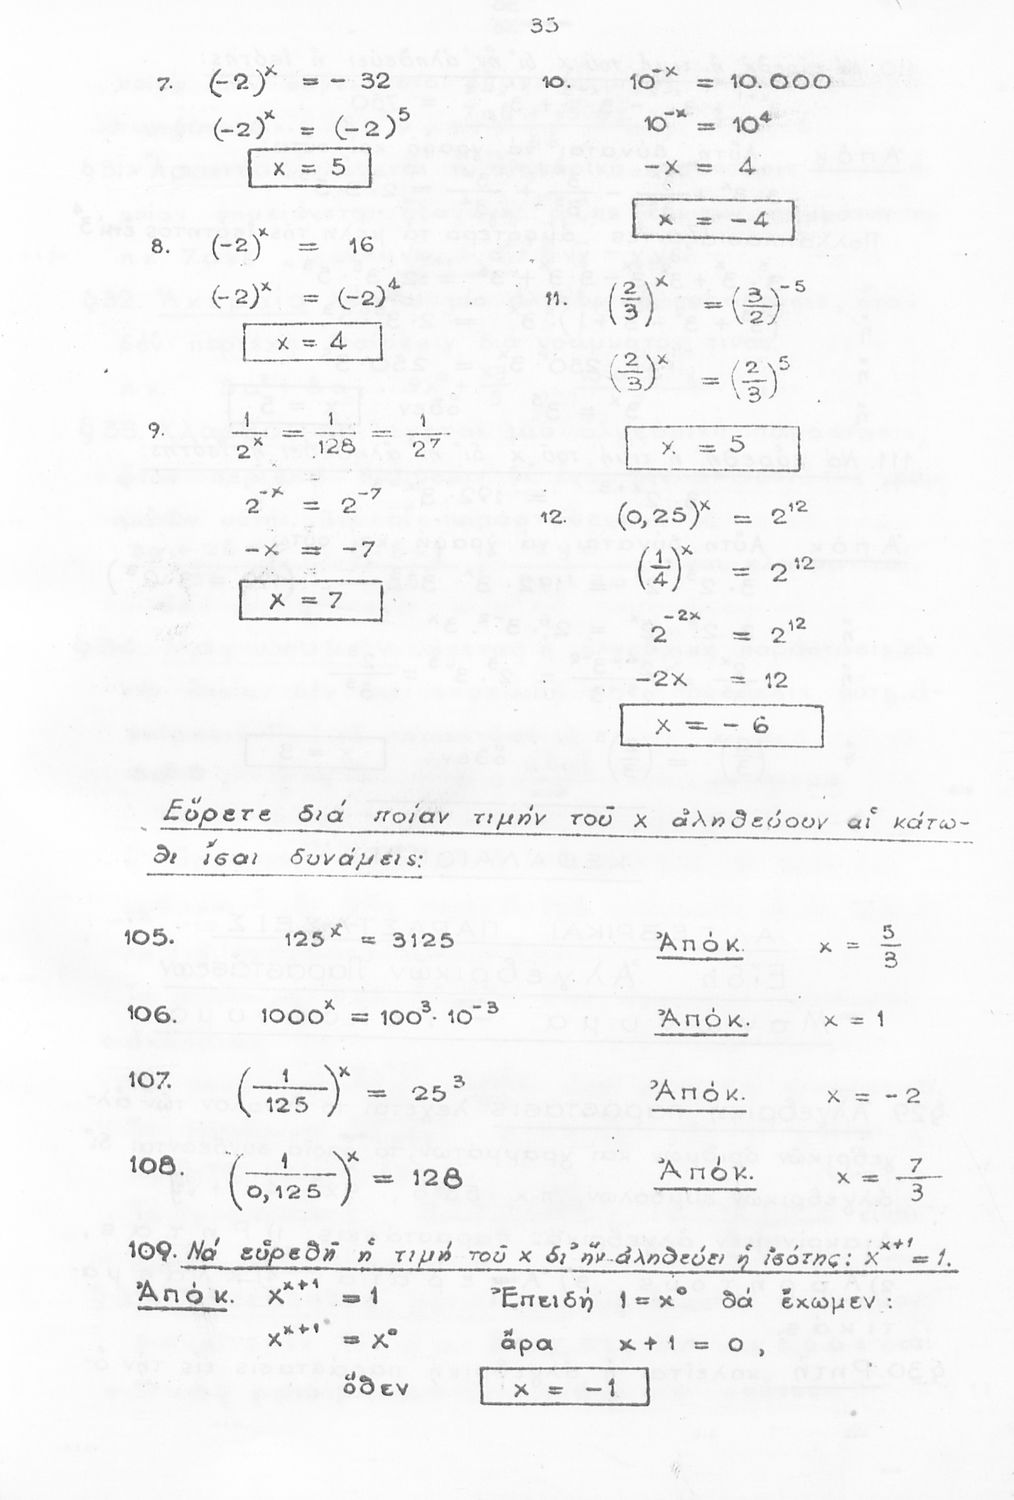 35
7. (-2)ˣ = - 32
(-2)ˣ = (-2)⁵
x = 5
8. (-2)ˣ = 16
(-2)ˣ = (-2)⁴
x = 4
9. 1/2ˣ = 1/128 = 1/2⁷
2⁻ˣ = 2⁻⁷
-x = -7
x = 7
10. 10⁻ˣ = 10.000
10⁻ˣ = 10⁴
-x = 4
x = - 4
11. (2/3)ˣ = (3/2)⁻⁵
(2/3)ˣ = (2/3)⁵
x = 5
12. (0,25)ˣ = 2¹²
(1/4)ˣ = 2¹²
2⁻²ˣ = 2¹²
-2x = 12
x = - 6
Εὕρετε διά ποίαν τιμήν τοῦ x ἀληθεύουν αἱ κάτω-
θι ἴσαι δυνάμεις:
105. 125ˣ = 3125 Ἀπόκ. x = 5/3
106. 1000ˣ = 100³· 10⁻³ Ἀπόκ. x = 1
107. (1/125)ˣ = 25³ Ἀπόκ. x = - 2
108. (1/0,125)ˣ = 128 Ἀπόκ. x = 7/3
109. Νά εὑρεθῆ ἡ τιμή τοῦ x δι' ἥν ἀληθεύει ἡ ἰσότης: xˣ⁺¹ = 1.
Ἀπόκ. xˣ⁺¹ = 1 Ἐπειδή 1 = x⁰ θά ἔχωμεν :
xˣ⁺¹ = x⁰ ἄρα x + 1 = 0 ,
ὅθεν x = -1